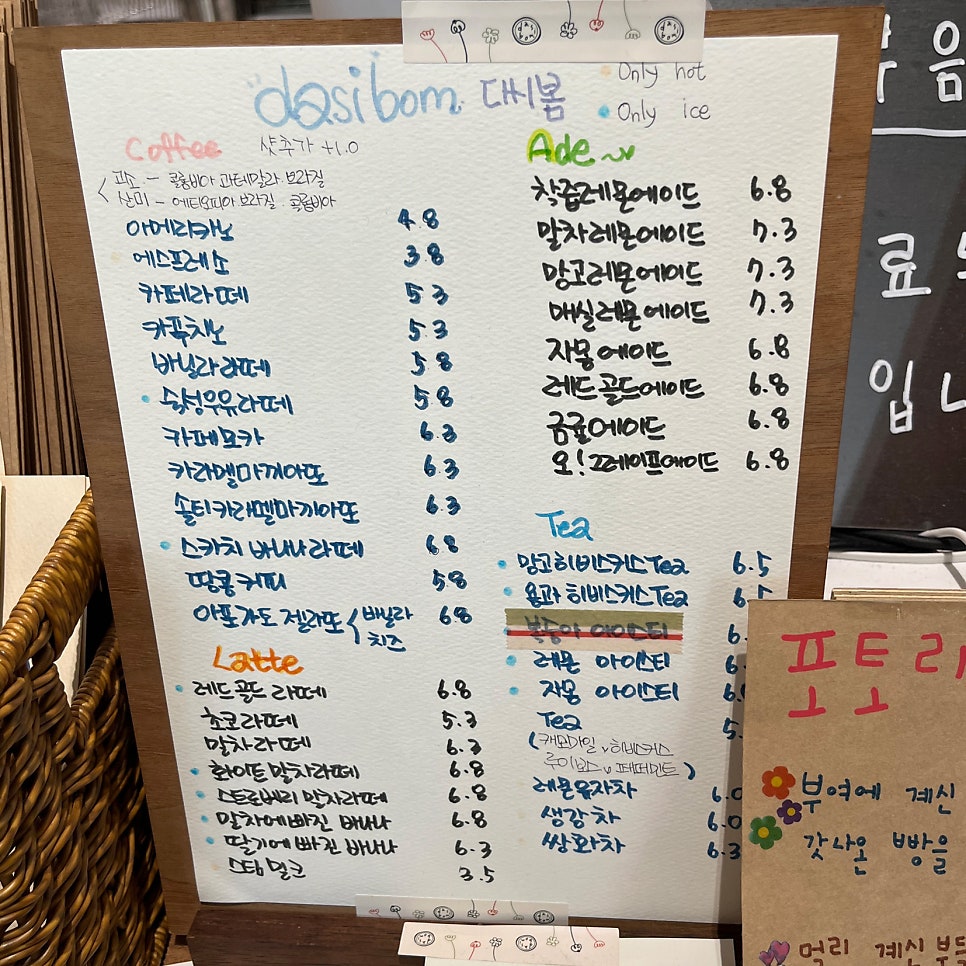 dasibom 다시봄
Only hot
Only ice
Coffee 샷추가 +1.0
고소 - 콜롬비아 과테말라 브라질
산미 - 에티오피아 브라질 · 콜롬비아
아메리카노 4.8
에스프레소 3.8
카페라떼 5.3
카푸치노 5.3
바닐라라떼 5.8
숨성우유라떼 5.8
카페모카 6.3
카라멜마끼아또 6.3
솔티카라멜마끼아또 6.3
스카치 바나나라떼 6.8
땅콩커피 5.8
아포가도 젤라또 < 바닐라 6.8
치즈
Latte
레드골드라떼 6.8
초코라떼 5.3
말차라떼 6.3
화이트말차라떼 6.8
스트로베리 말차라떼 6.8
말차에빠진 바나나 6.8
딸기에빠진 바나나 6.3
스팀밀크 3.5
Ade
착즙레몬에이드 6.8
말차레몬에이드 7.3
망고레몬에이드 7.3
매실레몬에이드 7.3
자몽에이드 6.8
레드골드에이드 6.8
금귤에이드 6.8
오!그레이프에이드 6.8
Tea
망고히비스커스Tea 6.5
용과히비스커스Tea 6.5
복숭아 아이스티 6.
레몬 아이스티 6.
자몽 아이스티 6.
Tea 5.
(캐모마일 v 히비스커스
루이보스 v 페퍼민트)
레몬유자차 6.0
생강차 6.0
쌍화차 6.3
음
료
입니
포토리
부여에 계신
갓나온 빵을
멀리 계신